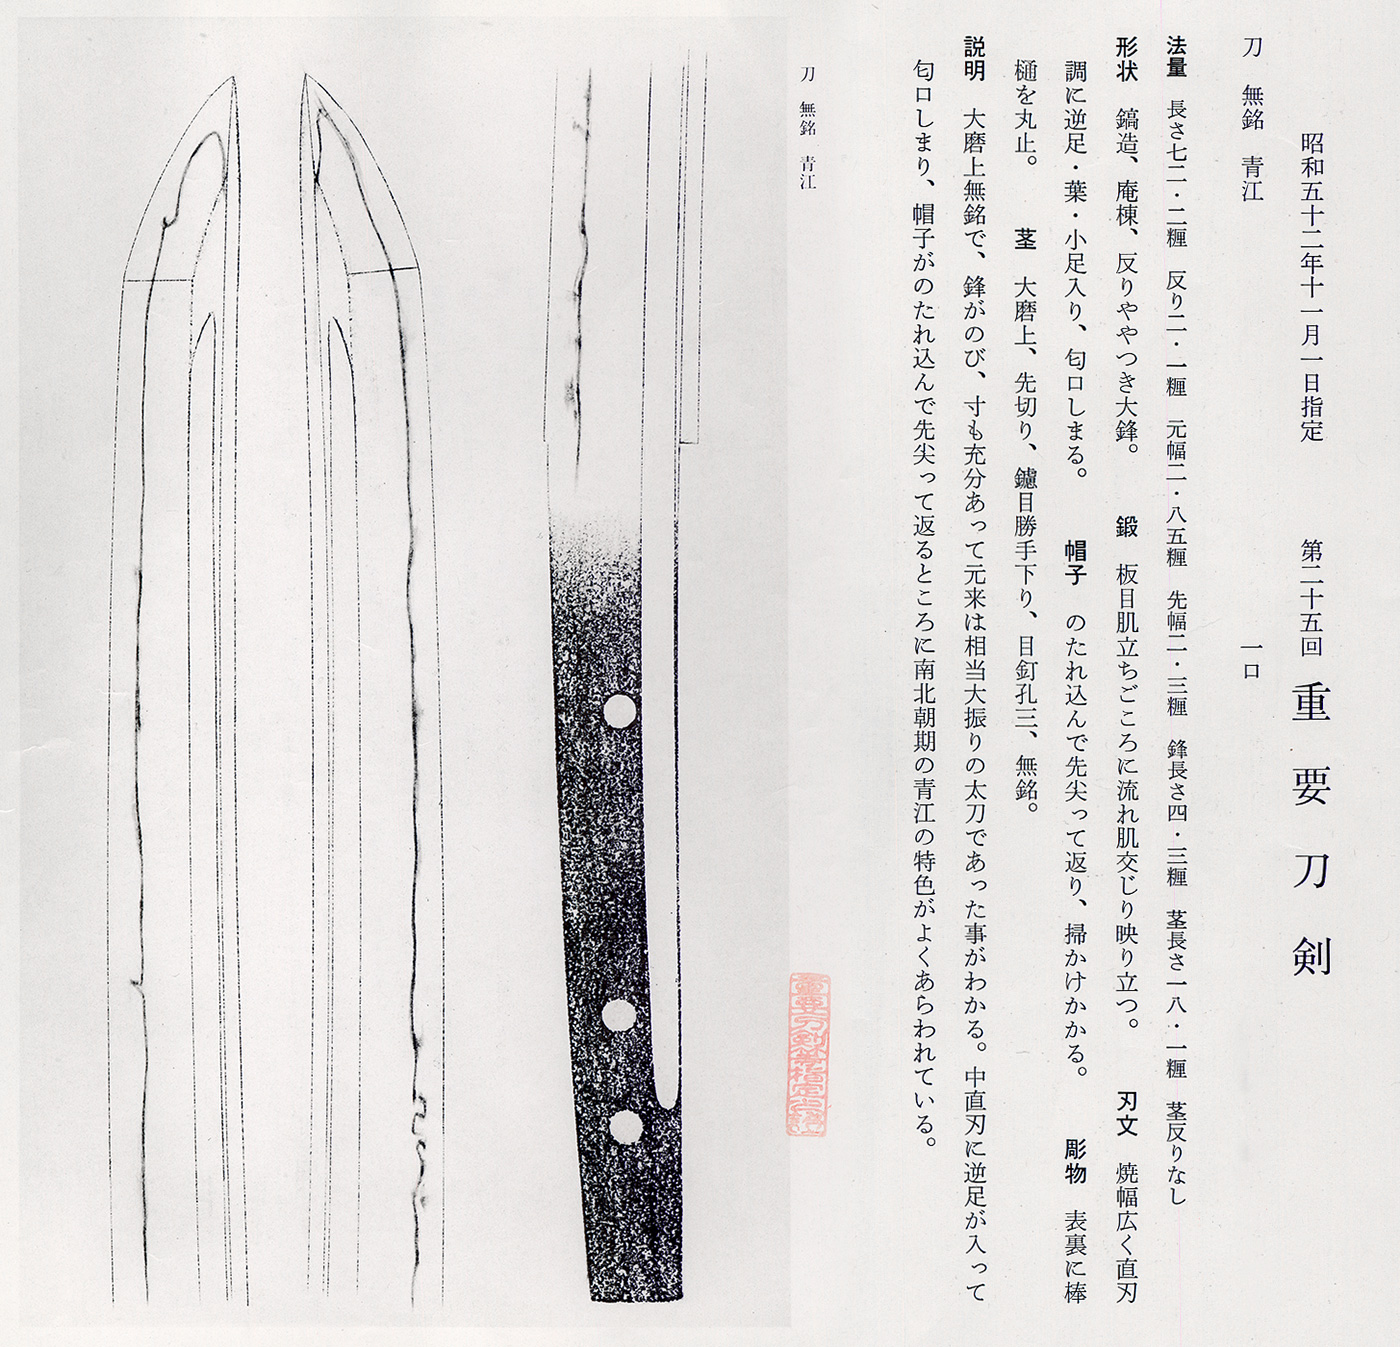 昭和五十二年十一月一日指定　第二十五回 重要刀剣
刀　無銘　青江　一口
法量　長さ七二・二糎　反り二・一糎　元幅二・八五糎　先幅二・三糎　鋒長さ四・三糎　茎長さ一八・一糎　茎反りなし
形状　鎬造、庵棟、反りややつき大鋒。　鍛　板目肌立ちごころに流れ肌交じり映り立つ。　刃文　焼幅広く直刃
調に逆足・葉・小足入り、匂口しまる。　帽子　のたれ込んで先尖って返り、掃かけかかる。　彫物　表裏に棒
樋を丸止。　茎　大磨上、先切り、鑢目勝手下り、目釘孔三、無銘。
説明　大磨上無銘で、鋒がのび、寸も充分あって元来は相当大振りの太刀であった事がわかる。中直刃に逆足が入って
匂口しまり、帽子がのたれ込んで先尖って返るところに南北朝期の青江の特色がよくあらわれている。
刀　無銘　青江
重要刀剣等指定之証